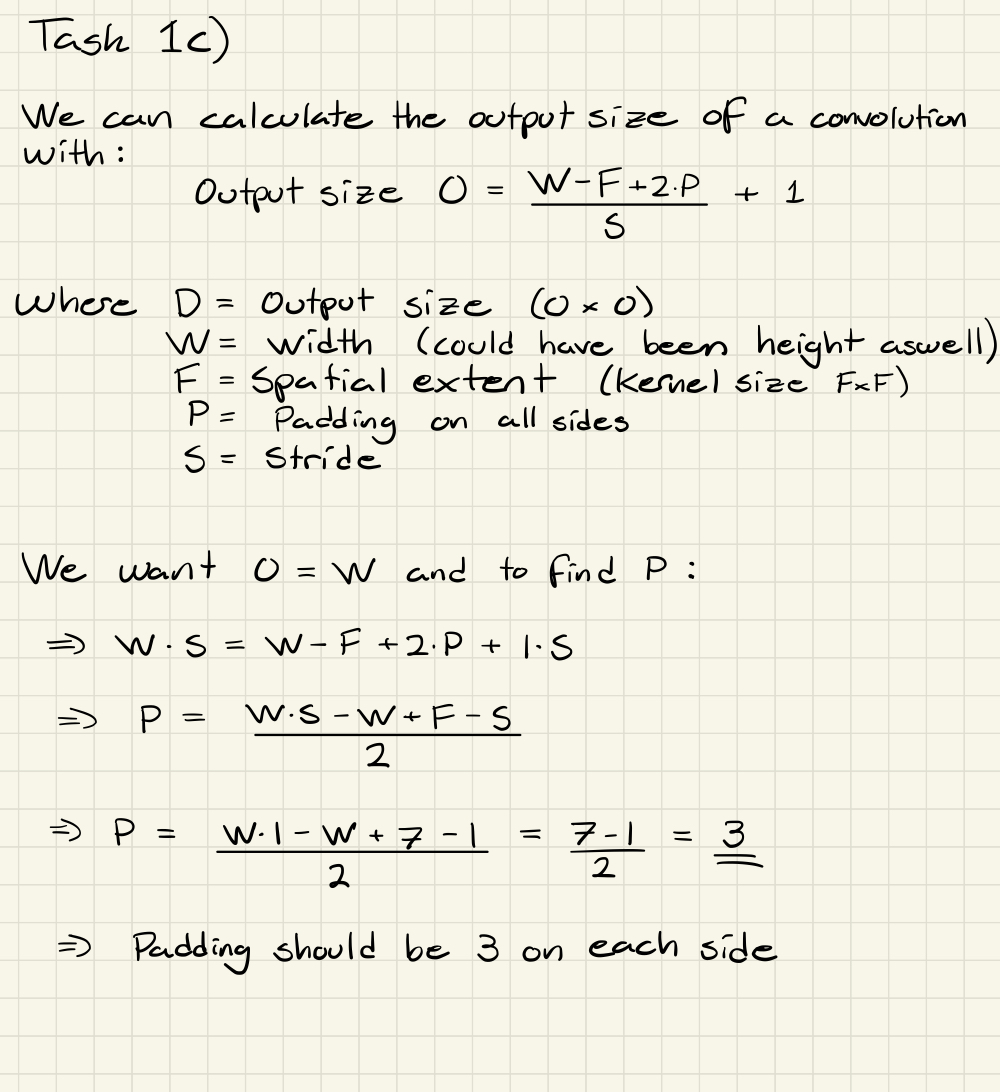 Task 1c)
We can calculate the output size of a convolution
with:
Output size O = \frac{W-F+2·P}{S} + 1
Where D = Output size (O × O)
W = width (could have been height aswell)
F = Spatial extent (Kernel size F×F)
P = Padding on all sides
S = Stride
We want O = W and to find P :
⇒ W · S = W - F + 2·P + 1·S
⇒ P = \frac{W·S - W + F - S}{2}
⇒ P = \frac{W·1 - W + 7 - 1}{2} = \frac{7-1}{2} = 3
⇒ Padding should be 3 on each side